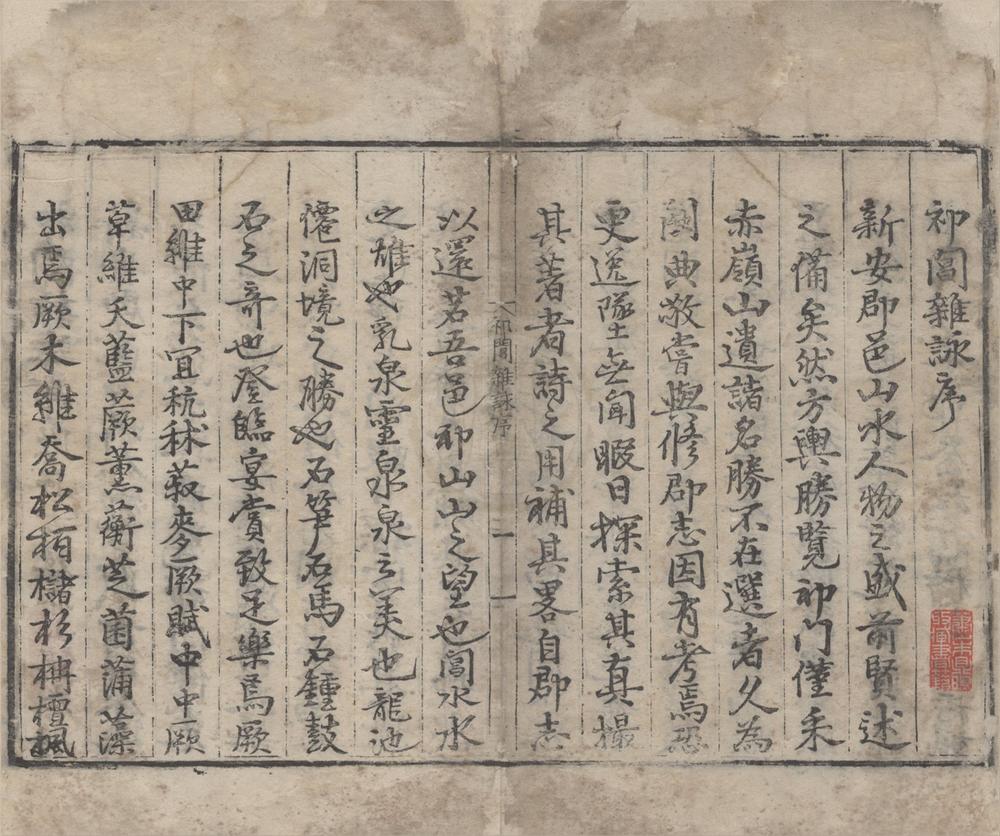 祁閶雜詠序
新安郡邑山水人物之盛前賢述
之備矣然方輿勝覽祁門僅采
赤嶺山遺諸名勝不在選者久為
闕典敬嘗與修郡志因有考焉恐
更逸墜無聞暇日探索其真撮
其著者詩之用補其畧自郡志
以還若吾邑祁山山之望也閶水水
之雄也乳泉靈泉泉之美也龍池
僊洞境之勝也石笋石馬石鍾鼓
石之竒也登臨宴賞致足樂焉厥
田維中下宜秔秫菽麥厥賦中中厥
草維夭藍蕨薰蘅芝菌蒲藻
出焉厥木維喬松栢櫧杉柟檀楓
祁閶雜詠序
一